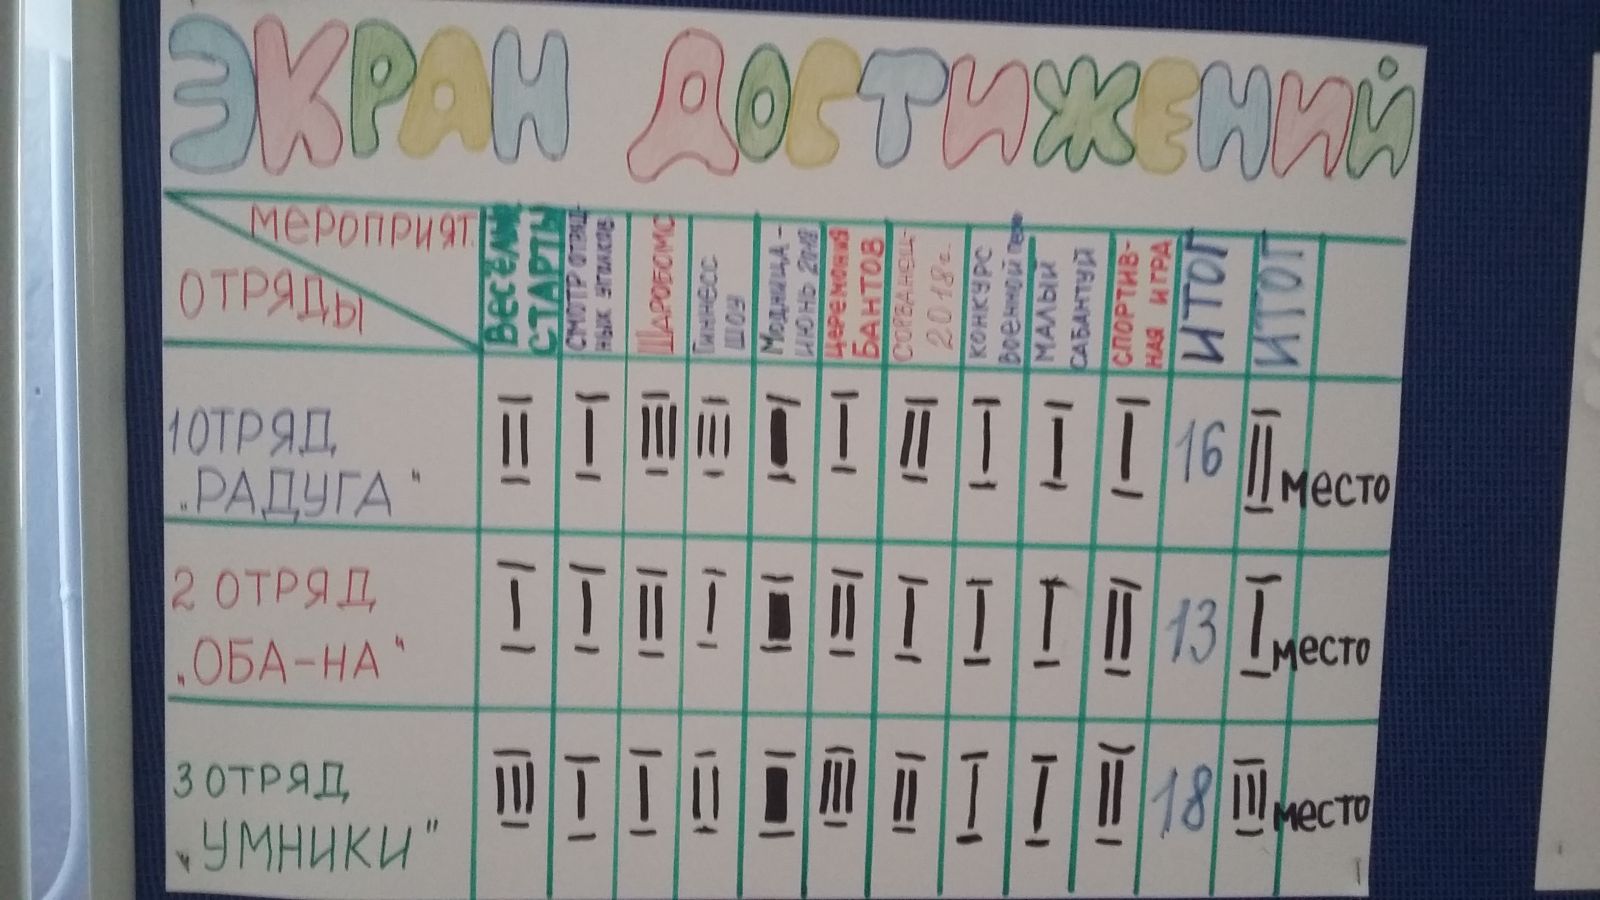 ЭКРАН ДОСТИЖЕНИЙ
МЕРОПРИЯТ.
ОТРЯДЫ
ВЕСЁЛЫЕ
СТАРТЫ
СМОТР ОТРЯД-
НЫХ УГОЛКОВ
ШАРОБОМС
Гиннесс
ШОУ
Модница-
ИЮНЬ 2018
Церемония
БАНТОВ
СОРВАНЕЦ-
2018г.
КОНКУРС
Военной
МАЛЫЙ
САБАНТУЙ
СПОРТИВ-
НАЯ ИГРА
ИТОГ
ИТОГ
1 ОТРЯД II I III III I II I I I 16 II место
„РАДУГА"
2 ОТРЯД I I II I II I I I II 13 I место
„ОБА-НА"
3 ОТРЯД III I I II III II I I II 18 III место
„УМНИКИ"